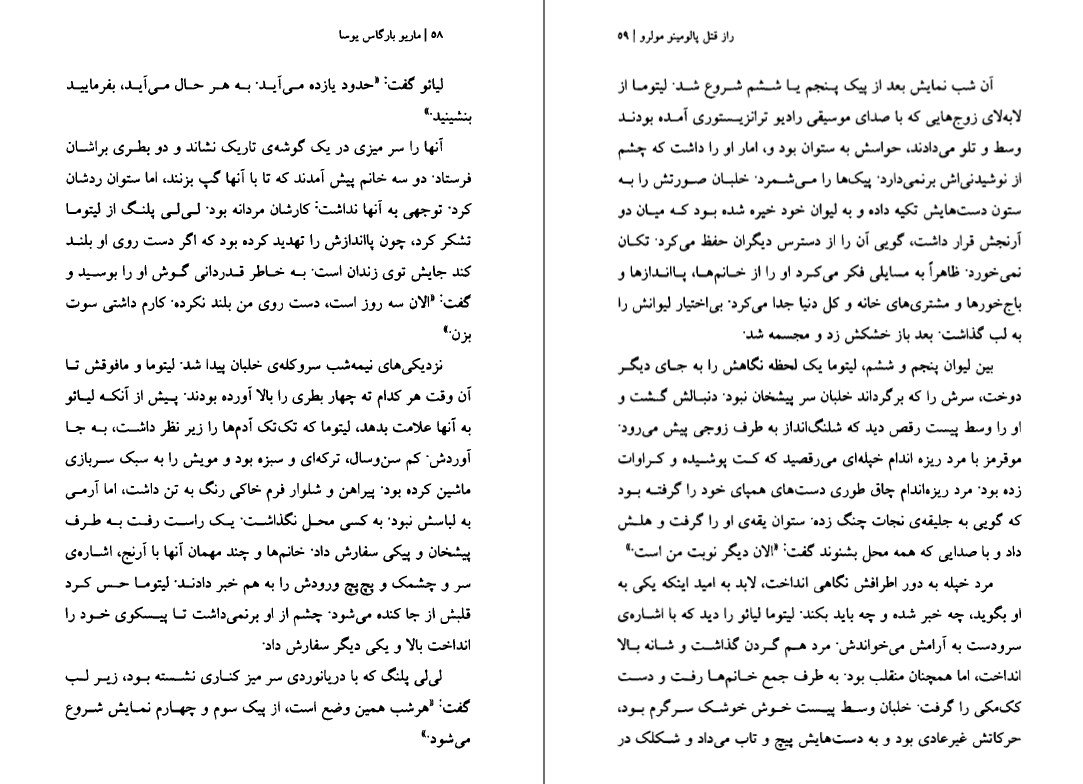 ۵۸ | ماریو بارگاس یوسا
لیائو گفت: «حدود یازده می‌آید. به هر حال می‌آید، بفرمایید
بنشینید.»
آنها را سر میزی در یک گوشه‌ی تاریک نشاند و دو بطری براشان
فرستاد. دو سه خانم پیش آمدند که تا با آنها گپ بزنند، اما ستوان ردشان
کرد. توجهی به آنها نداشت: کارشان مردانه بود. لی‌لی پلنگ از لیتوما
تشکر کرد، چون پااندازش را تهدید کرده بود که اگر دست روی او بلند
کند جایش توی زندان است. به خاطر قدردانی گوش او را بوسید و
گفت: «الان سه روز است، دست روی من بلند نکرده. کارم داشتی سوت
بزن.»
نزدیکی‌های نیمه‌شب سروکله‌ی خلبان پیدا شد. لیتوما و مافوقش تا
آن وقت هر کدام ته چهار بطری را بالا آورده بودند. پیش از آنکه لیائو
به آنها علامت بدهد، لیتوما که تک‌تک آدم‌ها را زیر نظر داشت، به جا
آوردش. کم سن‌وسال، ترکه‌ای و سبزه بود و مویش را به سبک سربازی
ماشین کرده بود. پیراهن و شلوار فرم خاکی رنگ به تن داشت، اما آرمی
به لباسش نبود. به کسی محل نگذاشت. یک راست رفت به طرف
پیشخان و پیکی سفارش داد. خانم‌ها و چند مهمان آنها با آرنج، اشاره‌ی
سر و چشمک و پچ‌پچ ورودش را به هم خبر دادند. لیتوما حس کرد
قلبش از جا کنده می‌شود. چشم از او برنمی‌داشت تا پیسکوی خود را
انداخت بالا و یکی دیگر سفارش داد.
لی‌لی پلنگ که با دریانوردی سر میز کناری نشسته بود، زیر لب
گفت: «هرشب همین وضع است، از پیک سوم و چهارم نمایش شروع
می‌شود.»
راز قتل پالومینو مولرو | ۵۹
آن شب نمایش بعد از پیک پنجم یا ششم شروع شد. لیتوما از
لابه‌لای زوج‌هایی که با صدای موسیقی رادیو ترانزیستوری آمده بودند
وسط و تلو می‌دادند، حواسش به ستوان بود و، امار او را داشت که چشم
از نوشیدنی‌اش برنمی‌دارد. پیک‌ها را می‌شمرد. خلبان صورتش را به
ستون دست‌هایش تکیه داده و به لیوان خود خیره شده بود که میان دو
آرنجش قرار داشت، گویی آن را از دسترس دیگران حفظ می‌کرد. تکان
نمی‌خورد. ظاهراً به مسایلی فکر می‌کرد او را از خانم‌ها، پااندازها و
باج‌خورها و مشتری‌های خانه و کل دنیا جدا می‌کرد. بی‌اختیار لیوانش را
به لب گذاشت. بعد باز خشکش زد و مجسمه شد.
بین لیوان پنجم و ششم، لیتوما یک لحظه نگاهش را به جای دیگر
دوخت، سرش را که برگرداند خلبان سر پیشخان نبود. دنبالش گشت و
او را وسط پیست رقص دید که شلنگ‌انداز به طرف زوجی پیش می‌رود.
موقرمز با مرد ریزه اندام خپله‌ای می‌رقصید که کت پوشیده و کراوات
زده بود. مرد ریزه‌اندام چاق طوری دست‌های همپای خود را گرفته بود
که گویی به جلیقه‌ی نجات چنگ زده. ستوان یقه‌ی او را گرفت و هلش
داد و با صدایی که همه محل بشنوند گفت: «الان دیگر نوبت من است.»
مرد خپله به دور اطرافش نگاهی انداخت، لابد به امید اینکه یکی به
او بگوید، چه خبر شده و چه باید بکند. لیتوما لیائو را دید که با اشاره‌ی
سرودست به آرامش می‌خواندش. مرد هم گردن گذاشت و شانه بالا
انداخت، اما همچنان منقلب بود. به طرف جمع خانم‌ها رفت و دست
کک‌مکی را گرفت. خلبان وسط پیست خوش خوشک سرگرم بود،
حرکاتش غیرعادی بود و به دست‌هایش پیچ و تاب می‌داد و شکلک در